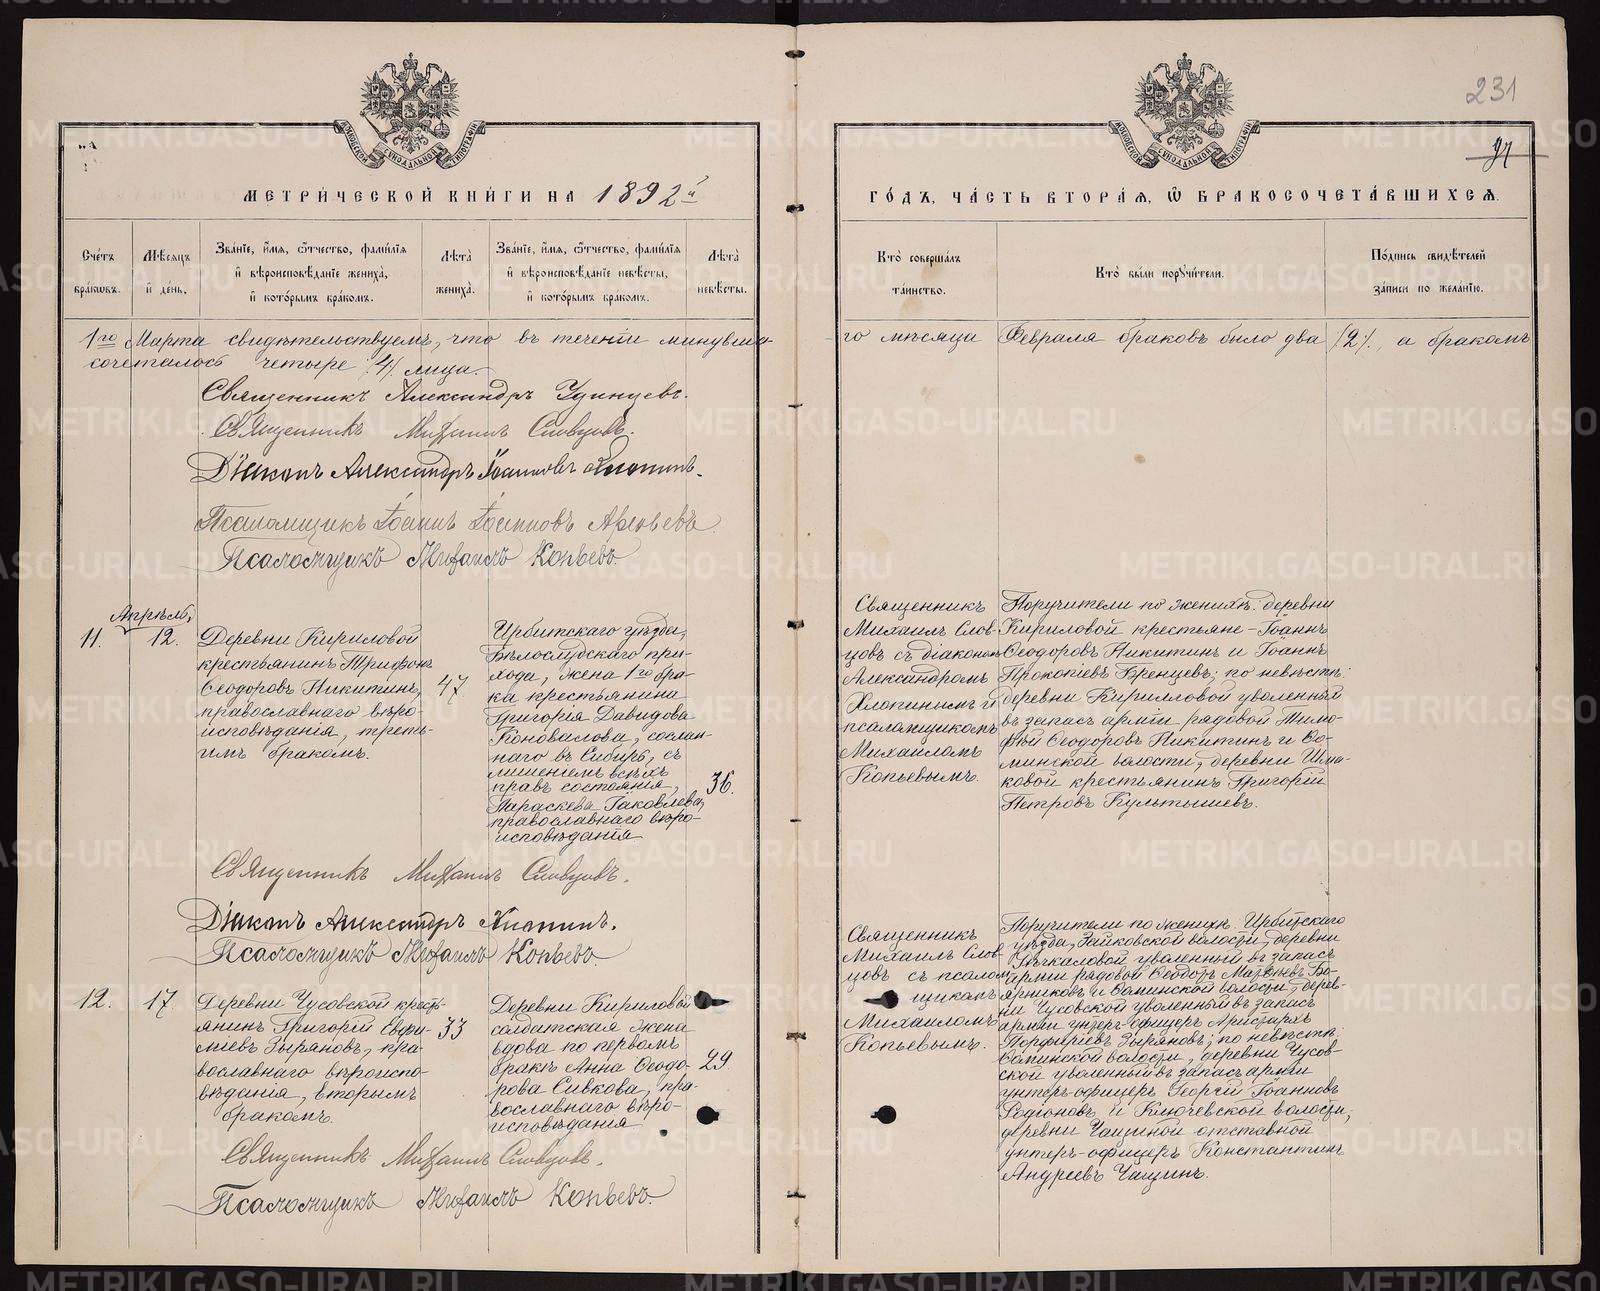 231
97
МЕТРИЧЕСКОЙ КНИГИ НА 1892й
ГОДЪ, ЧАСТЬ ВТОРАЯ, Ѿ БРАКОСОЧЕТАВШИХСЯ.
МОСКОВСКОЙ СѴНОДАЛЬНОЙ ТИПОГРАФІИ
МОСКОВСКОЙ СѴНОДАЛЬНОЙ ТИПОГРАФІИ
Счетъ браковъ.
Мѣсяцъ и день.
Званіе, имя, ѿтчество, фамилія
и вѣроисповѣданіе жениха,
и которымъ бракомъ.
Лѣта жениха.
Званіе, имя, ѿтчество, фамилія
и вѣроисповѣданіе невѣсты,
и которымъ бракомъ.
Лѣта невѣсты.
Кто совершалъ таинство.
Кто были поручители.
Подпись свидѣтелей записи по желанію.
1го Марта свидѣтельствуемъ, что въ теченіи минувша-
го мѣсяца Февраля браковъ было два /2/, а бракомъ
сочеталось четыре /4/ лица.
Священникъ Александръ Удинцевъ.
Священникъ Михаилъ Словцовъ.
Діаконъ Александръ Іоанновъ Хлопинъ.
Псаломщикъ Іоаннъ Іоанновъ Арефьевъ
Псаломщикъ Михаилъ Копьевъ.
Апрѣль,
11.
12.
Деревни Кириловой
крестьянинъ Трифонъ
Ѳеодоровъ Никитинъ,
православнаго вѣро-
исповѣданія, треть-
имъ бракомъ.
47
Ирбитскаго уѣзда,
Бѣлослудскаго при-
хода, жена 1го бра-
ка крестьянина
Григорія Давидова
Коновалова, сослан-
наго въ Сибирь, съ
лишеніемъ всѣхъ
правъ состоянія,
Параскева Іаковлева,
православнаго вѣро-
исповѣданія
36.
Священникъ
Михаилъ Слов-
цовъ съ діакономъ
Александромъ
Хлопинымъ и
псаломщикомъ
Михаиломъ
Копьевымъ.
Поручители по женихѣ: деревни
Кириловой крестьяне – Іоаннъ
Ѳеодоровъ Никитинъ и Іоаннъ
Прокопіевъ Бренцевъ; по невѣстѣ:
деревни Кирилловой уволенный
въ запасъ арміи рядовой Тимо-
фей Ѳеодоровъ Никитинъ и Ѳо-
минской волости, деревни Шма-
ковой крестьянинъ Григорій
Петровъ Культышевъ.
Священникъ Михаилъ Словцовъ.
Діаконъ Александръ Хлопинъ.
Псаломщикъ Михаилъ Копьевъ
12.
17.
Деревни Чусовской кресть-
янинъ Григорій Евфи-
міевъ Зыряновъ, пра-
вославнаго вѣроиспо-
вѣданія, вторымъ
бракомъ.
33
Деревни Кириловой
солдатская жена
вдова по первомъ
бракѣ Анна Ѳеодо-
рова Сивкова, пра-
вославнаго вѣро-
исповѣданія
29.
Священникъ
Михаилъ Слов-
цовъ съ псалом-
щикомъ
Михаиломъ
Копьевымъ.
Поручители по женихѣ: Ирбитскаго
уѣзда, Зайковской волости, деревни
уволенный въ запасъ
арміи рядовой Ѳеодоръ Матвѣевъ Бо-
ярниковъ и Ѳоминской волости, дерев-
ни Чусовской уволенный въ запасъ
арміи унтеръ-офицеръ Аристархъ
Порфиріевъ Зыряновъ; по невѣстѣ:
Ѳоминской волости, деревни Чусов-
ской уволенный въ запасъ арміи
унтеръ-офицеръ Георгій Іоанновъ
Родіоновъ и Ключевской волости,
деревни Чащиной отставной
унтеръ-офицеръ Константинъ
Андреевъ Чащинъ.
Священникъ Михаилъ Словцовъ.
Псаломщикъ Михаилъ Копьевъ.
METRIKI.GASO-URAL.RU